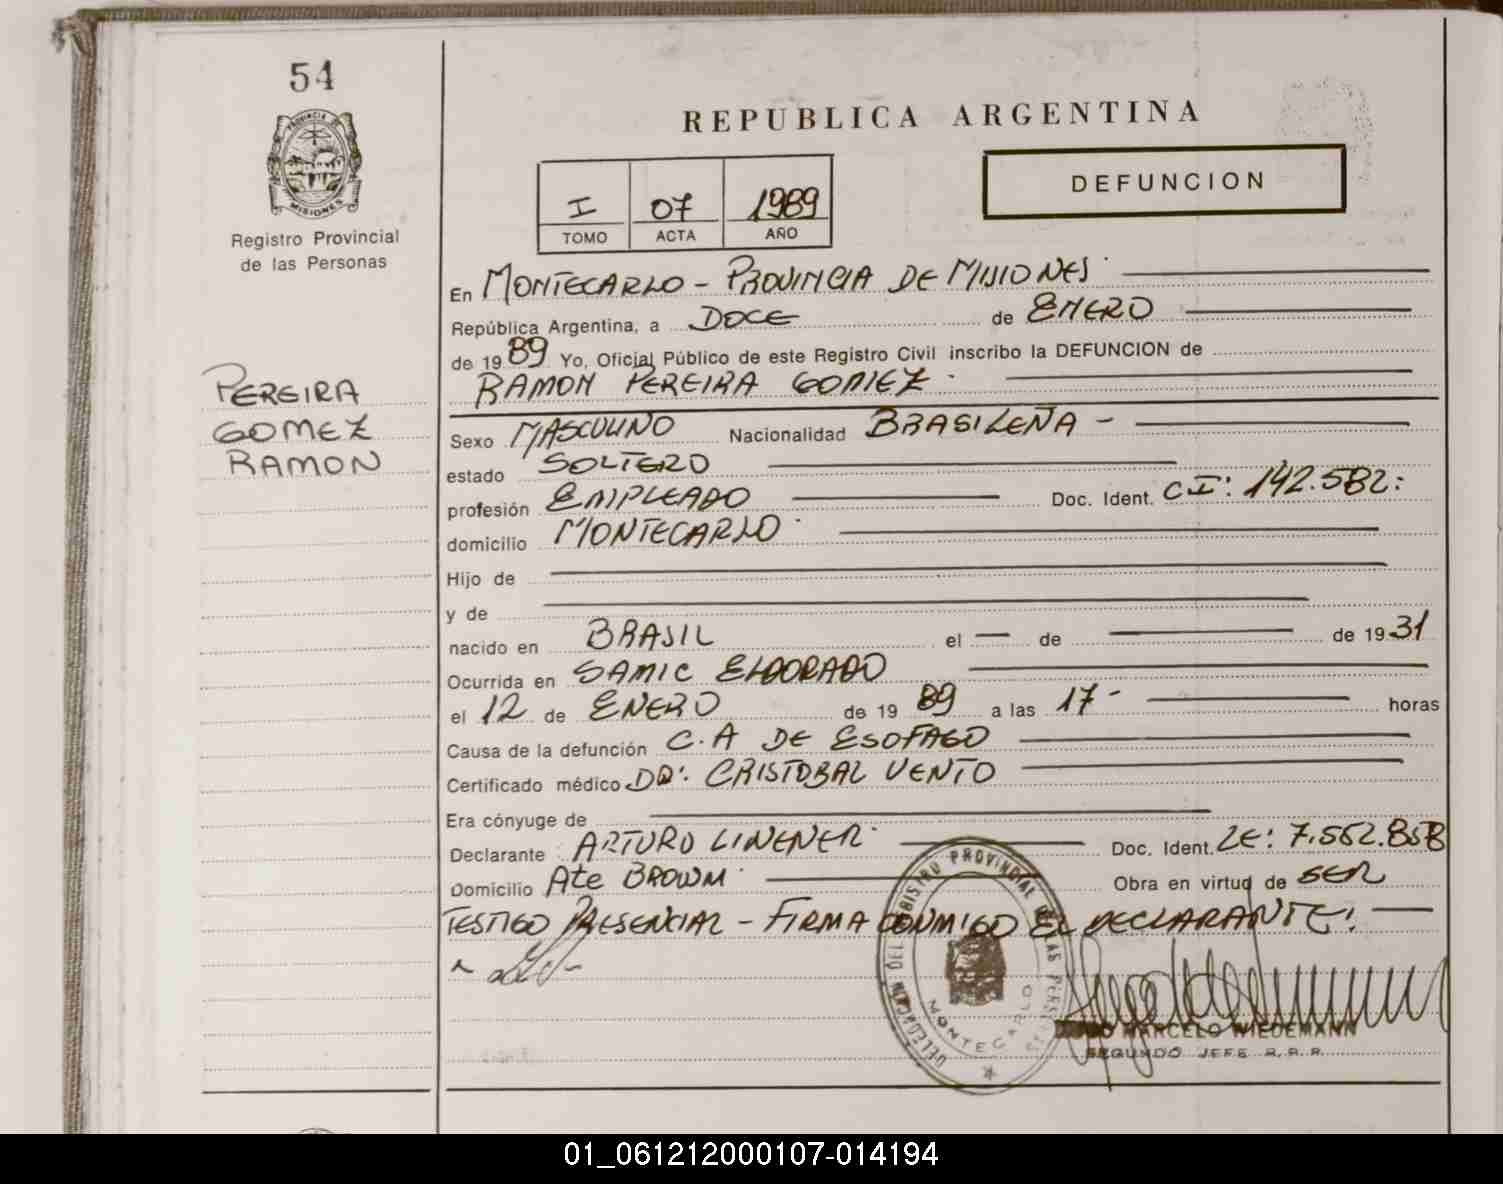 54
REPUBLICA ARGENTINA
PROVINCIA DE
MISIONES
Registro Provincial
de las Personas
I 07 1989
TOMO ACTA AÑO
DEFUNCION
En MONTECARLO - PROVINCIA DE MISIONES
República Argentina, a DOCE de ENERO
de 19 89 Yo, Oficial Público de este Registro Civil inscribo la DEFUNCION de
RAMON PEREIRA GOMEZ
PEREIRA
GOMEZ
RAMON
Sexo MASCULINO Nacionalidad BRASILEÑA -
estado SOLTERO
profesión EMPLEADO Doc. Ident. CI: 142.582:
domicilio MONTECARLO
Hijo de
y de
nacido en BRASIL el — de — de 19 31
Ocurrida en SAMIC ELDORADO
el 12 de ENERO de 19 89 a las 17 - horas
Causa de la defunción C.A DE ESOFAGO
Certificado médico DR. CRISTOBAL VENTO
Era cónyuge de
Declarante ARTURO LINENER Doc. Ident. LE: 7.552.858
Domicilio Ate BROWN Obra en virtud de SER
TESTIGO PRESENCIAL - FIRMA CONMIGO EL DECLARANTE:
DELEGACION DEL REGISTRO PROVINCIAL DE LAS PERSONAS
MONTECARLO
MARCELO WIEDEMANN
SEGUNDO JEFE R.P.P.
01_061212000107-014194